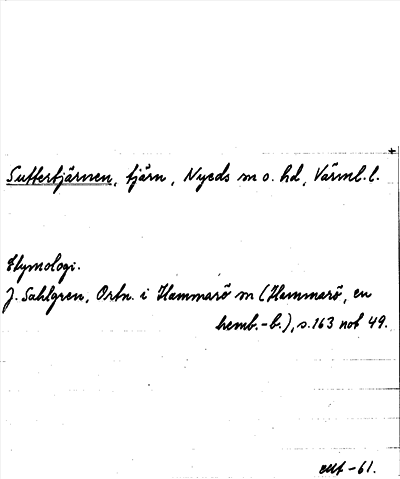 +
Suttertjärnen, tjärn, Nyeds m o. hd, Värml. l.
Etymologi.
J. Sahlgren, Ortn. i Hammarö m (Hammarö, en
hemb.-b.), s. 163 not 49.
-61.